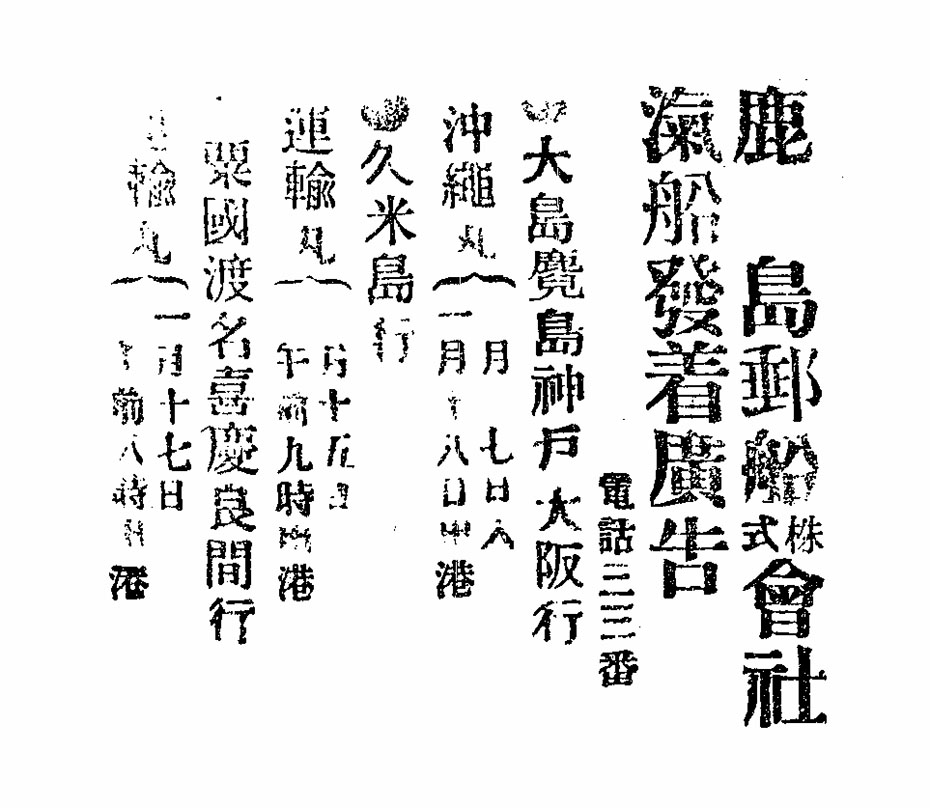 鹿島郵船株式會社
滊船發着廣告
電話三三番
大島麑島神戸大阪行
沖繩丸
月七日入
一月十八日出港
久米島行
運輸丸
月十五日
午前九時出港
粟國渡名喜慶良間行
輸丸
一月十七日
前八時出港